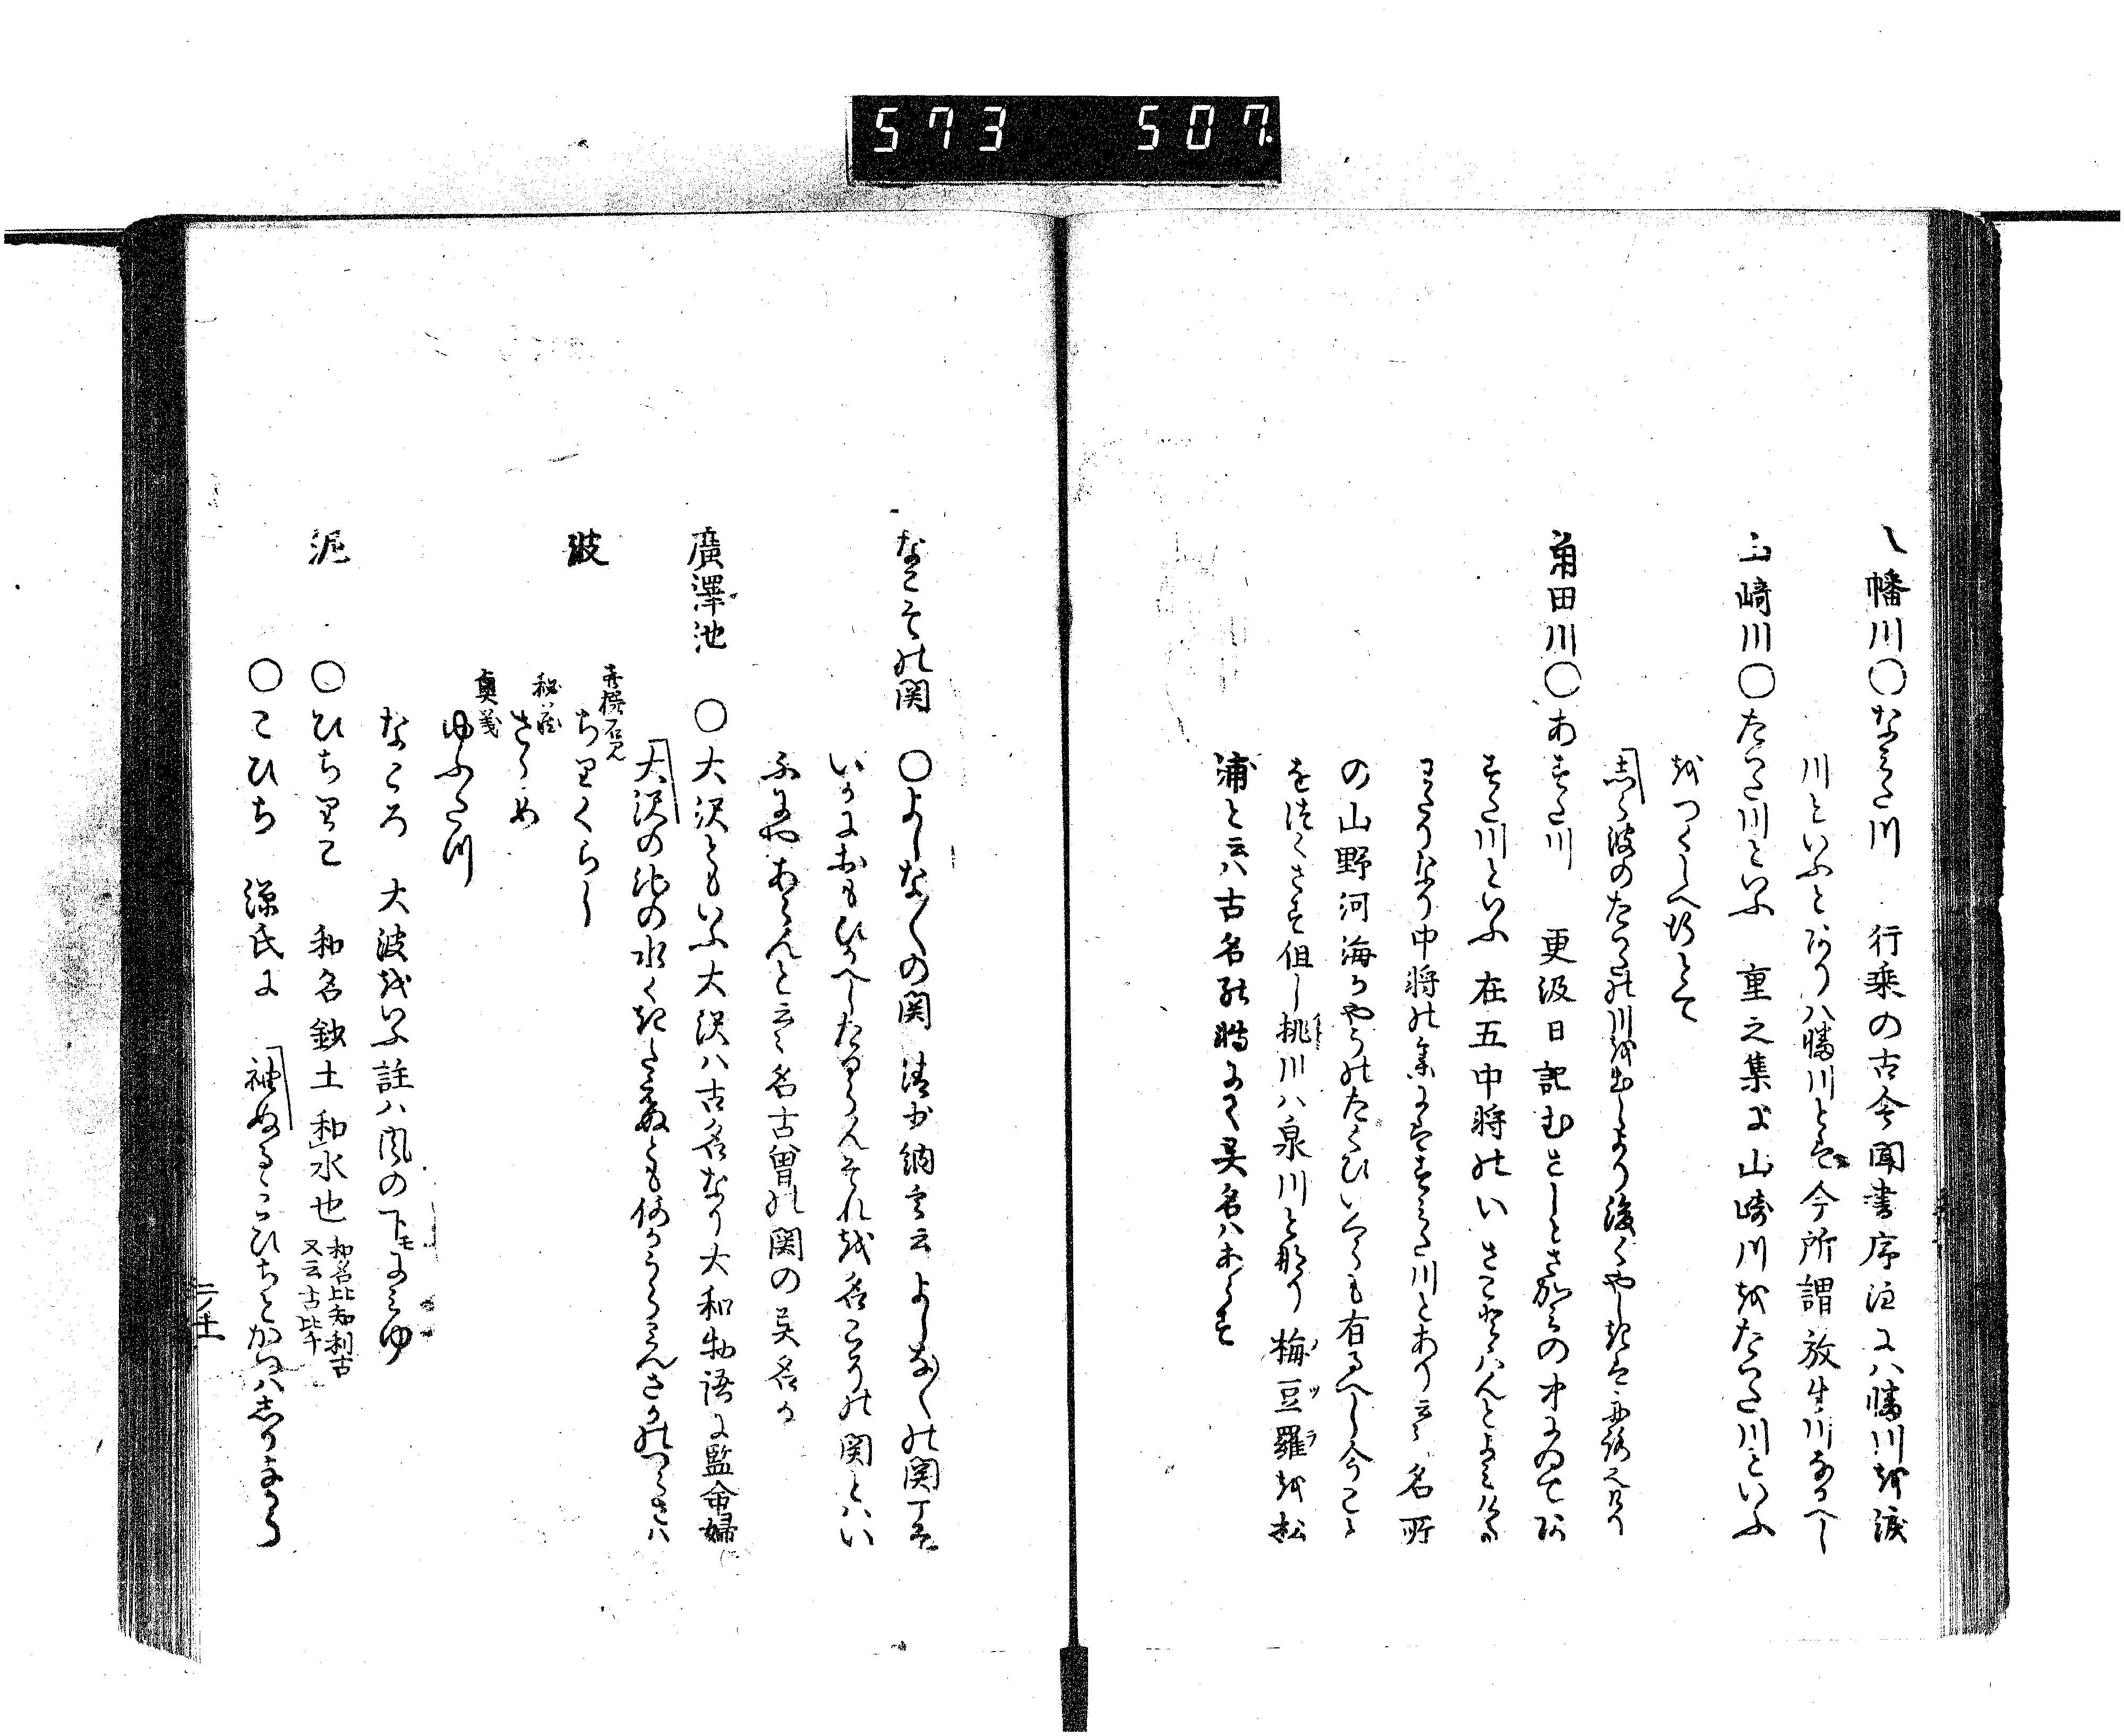 573 507
八幡川○なみた川 行乗の古今聞書序注に八幡川を涙
川といふとあり八幡川とは今所謂放生川なるへし
山崎川○たかた川といふ 重之集に山崎川をたかた川といふ
をつくしへ行とて
しら波のたかたの川を出しより後くやしきは
角田川○あすた川 更級日記むさしとさかみの中にゐてあ
すた川といふ 在五中将のいさこととはんとよみける
わたりなり中将の集にはすみた川とあり云々 名所
の山野河海かやうのたくひいくらも有るへし今こと
をつくさす但し挑川ハ泉川と那り 梅豆羅を松
浦と云ハ古名の時にて異名ハあらす
なこその関 ○よしなよしなの関 清少納言云 よしなよしなの関こそ
いかにおもひかへしたるらんそれを名こその関とハい
ふにやあらんと云々 名古曽の関の異名か
廣澤池 ○大沢ともいふ大沢ハ古名なり大和物語に監命婦
大沢の池の水くきたえぬとも何かうらみんさかのつらさハ
波 ちりくらし
秘蔵 さらめ
奥義 ゆふた川
なころ 大波をいふ註ハ風の下にみゆ
泥 ○ひちりこ 和名 土和水也 和名比知利古 又云古比千
○こひち 源氏に 袖ぬるゝこひちとかつハしりなから
二ノ十一